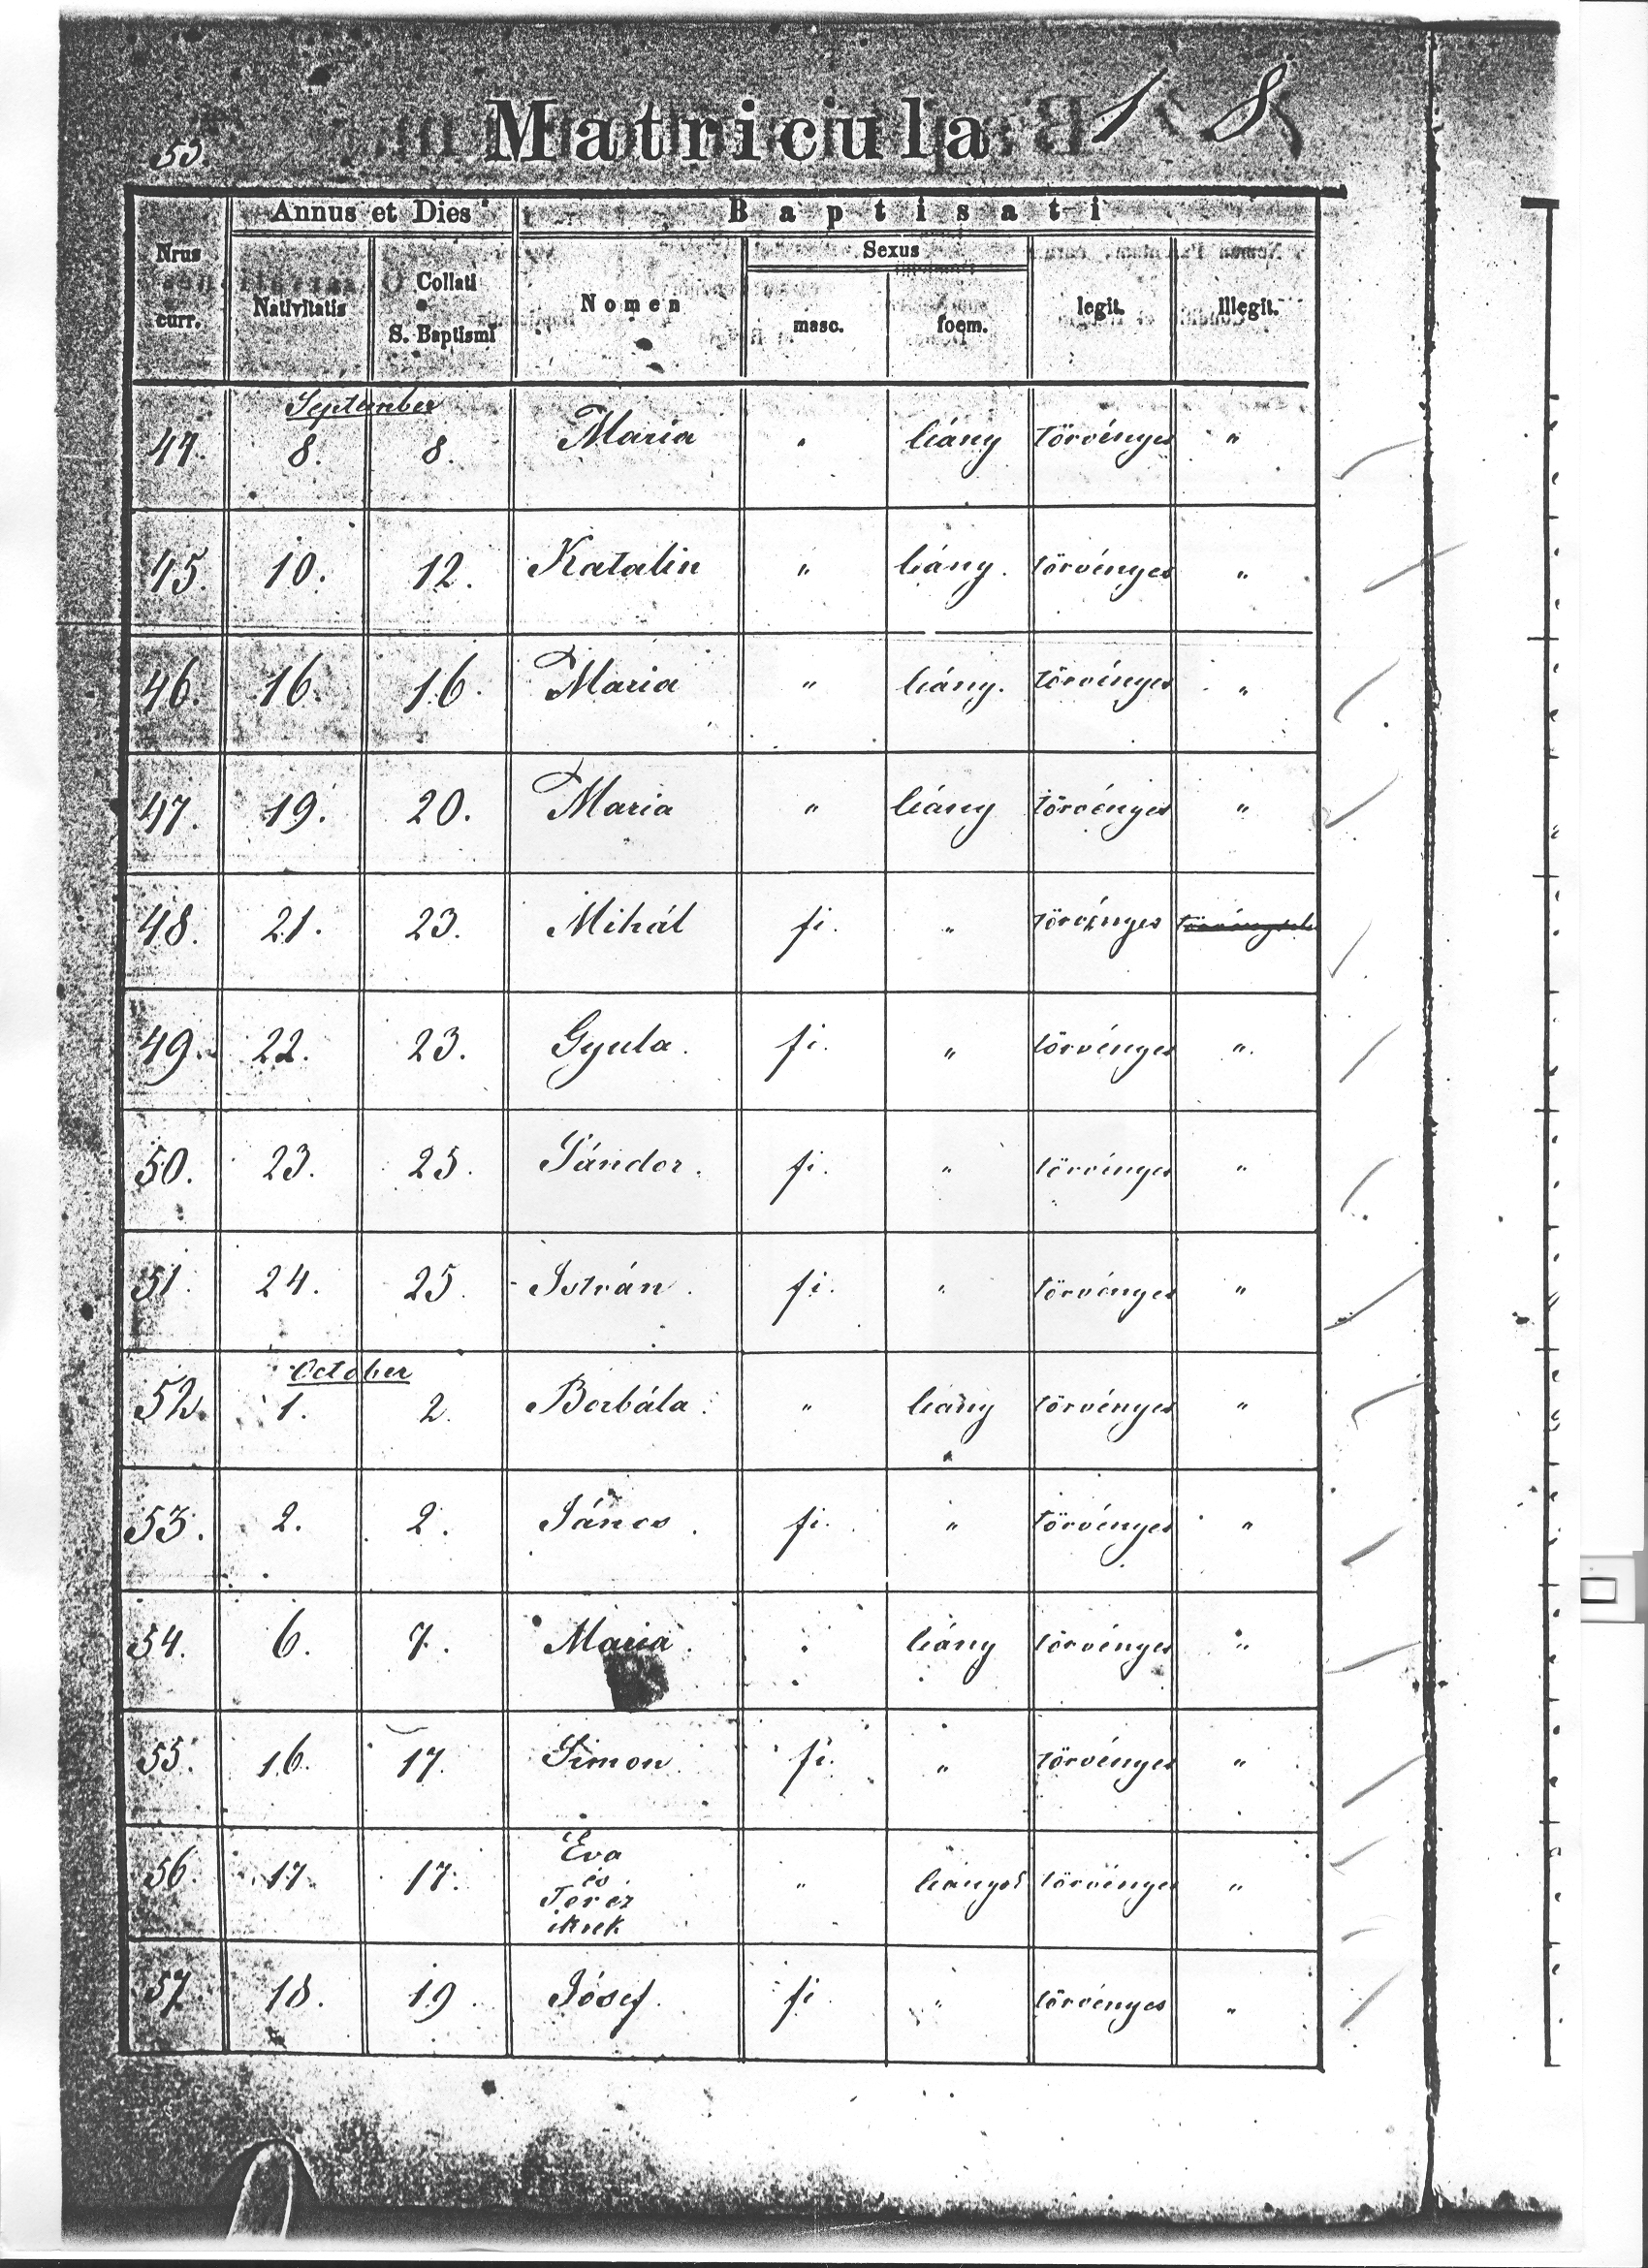 53.
Matricula
1 8
Annus et Dies
Baptisati
Nrus curr.
Nativitatis
Collati S. Baptismi
Nomen
Sexus
masc.
foem.
legit.
Illegit.
September
44. 8. 8. Maria " leány törvényes "
45. 10. 12. Katalin " leány. törvényes "
46. 16. 16. Maria " leány. törvényes "
47. 19. 20. Maria " leány törvényes "
48. 21. 23. Mihál fi. " törvényes
49. 22. 23. Gyula. fi. " törvényes "
50. 23. 25. Sándor. fi. " törvényes "
51. 24. 25. István. fi. " törvényes "
October
52. 1. 2. Borbála. " leány törvényes "
53. 2. 2. János. fi. " törvényes "
54. 6. 7. Maria. " leány törvényes "
55. 16. 17. Simon. fi. " törvényes "
56. 17. 17. Éva
és
Teréz
ikrek
" leányok törvényes "
57. 18. 19. Jósef. fi " törvényes "